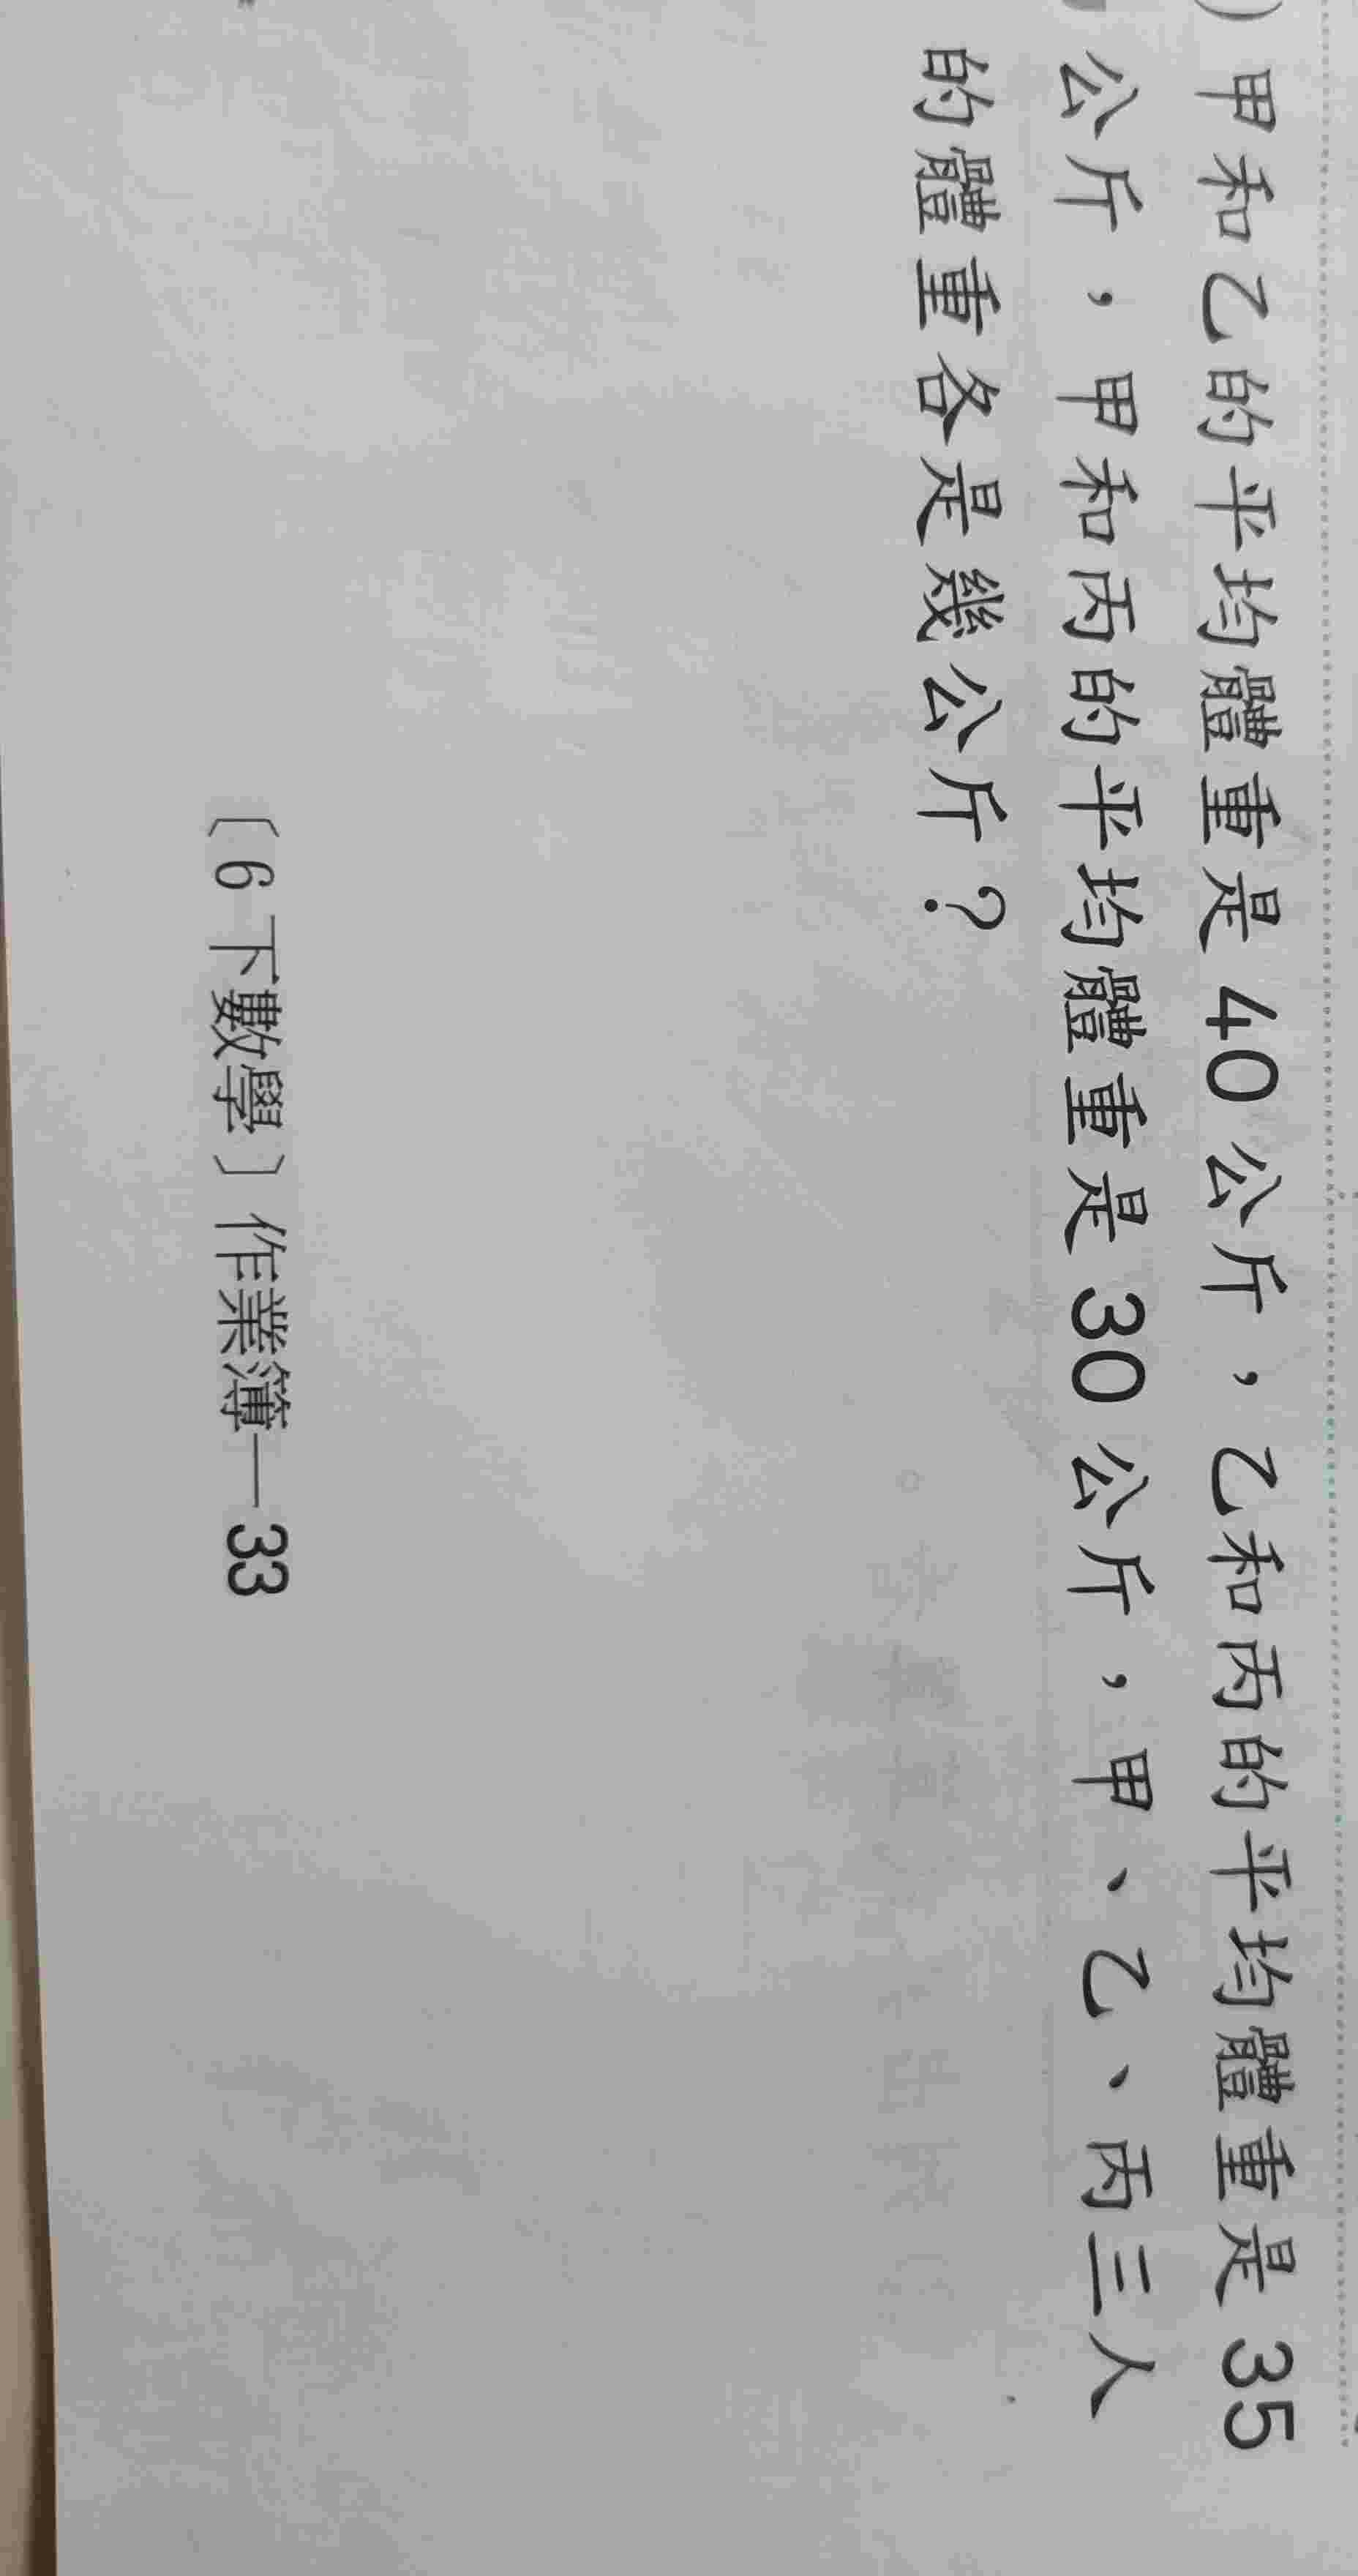 )甲和乙的平均體重是40公斤，乙和丙的平均體重是35
公斤，甲和丙的平均體重是30公斤，甲、乙、丙三人
的體重各是幾公斤？
〔6下數學〕作業簿—33